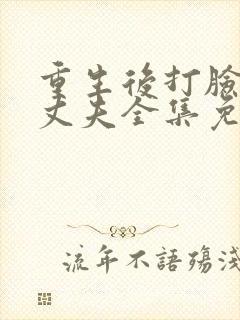 重生後打臉
丈夫全集免
流年不語殤淺